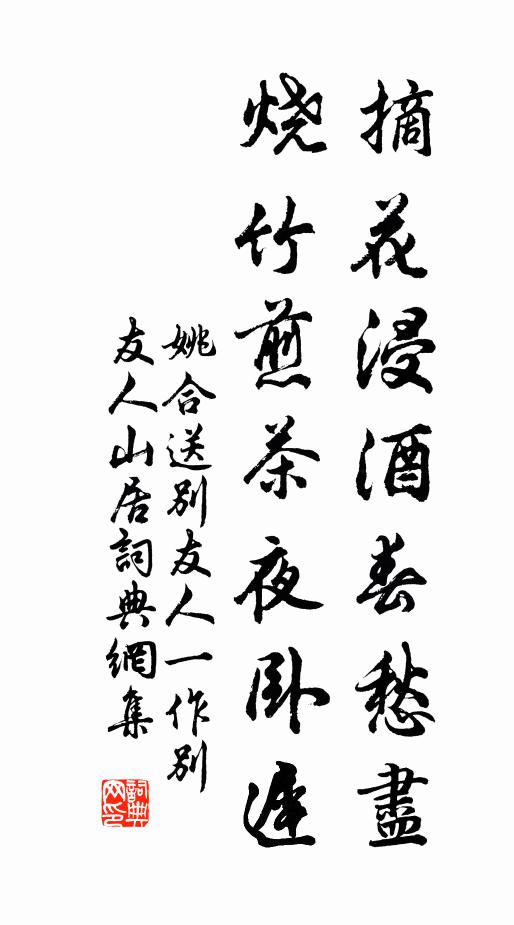 摘花浸酒春愁盡
烧竹煎茶夜卧遲
姚合送别友人一作别
友人山居詞典網集
詞典网印